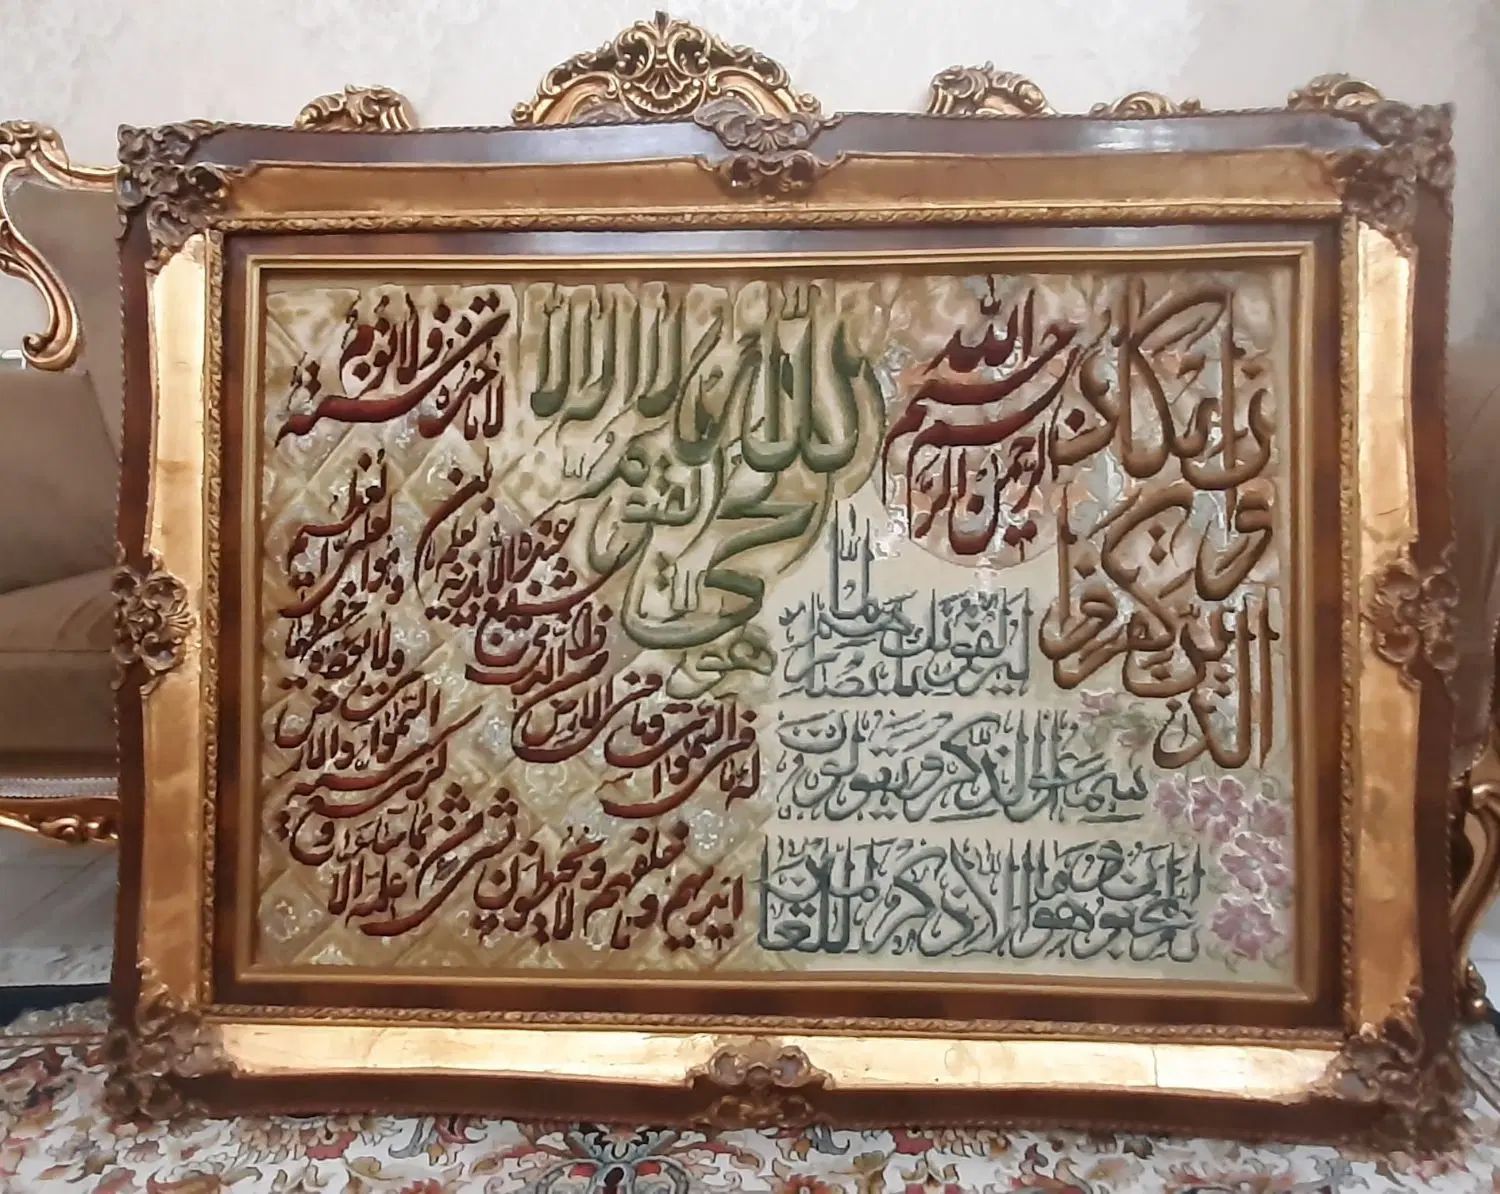 بسم الله الرحمن الرحیم
و ان یکاد
الذین کفروا
لیزلقونک بابصارهم لما
سمعوا الذکر و یقولون
انه لمجنون و ما هو الا ذکر للعالمین
الله لا اله الا
هو الحی القیوم
لا تاخذه سنة و لا نوم
له ما فی السموات و ما فی الارض
من ذا الذی یشفع
عنده الا باذنه یعلم ما بین
ایدیهم و ما خلفهم و لا یحیطون بشئ من
علمه الا بما شاء
وسع کرسیه
السموات و الارض
و لا یؤده حفظهما
و هو العلی العظیم